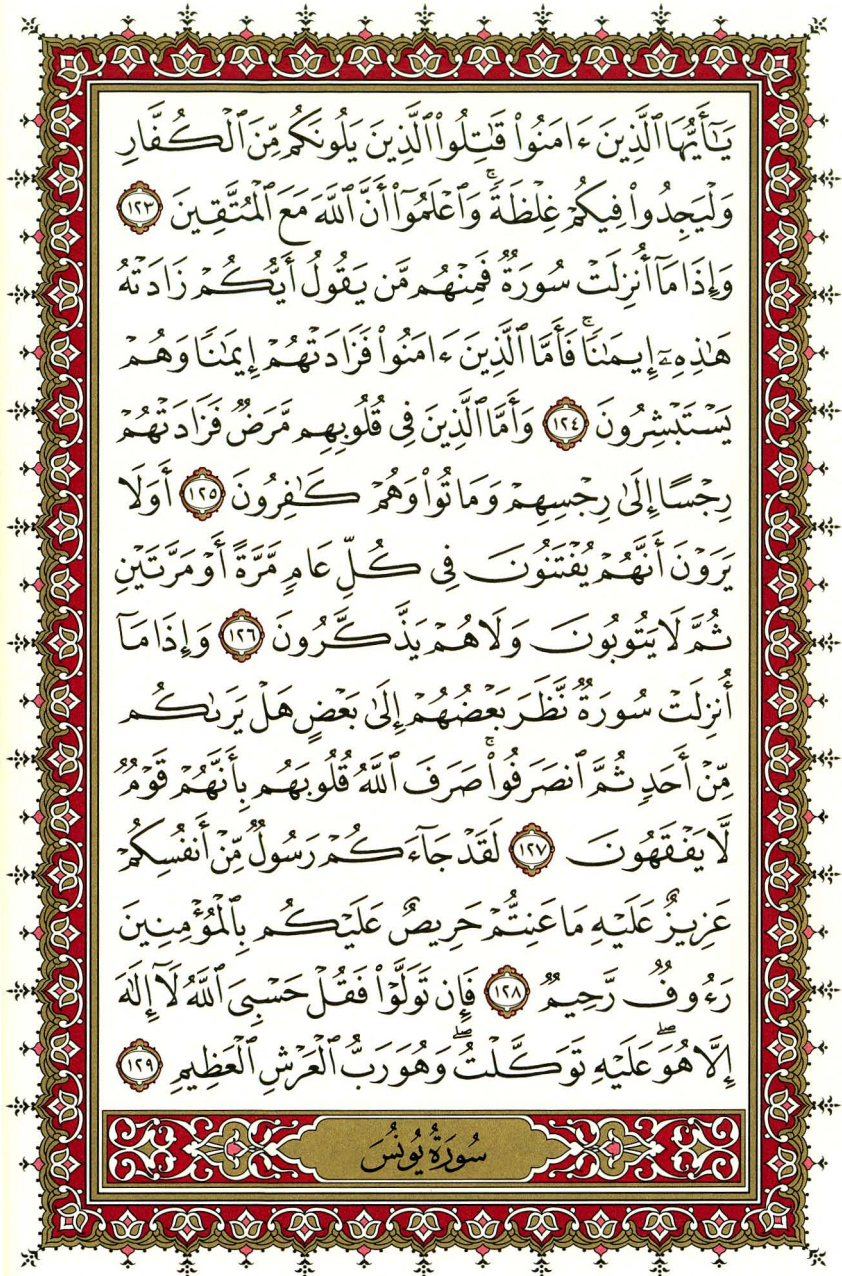 يَـٰٓأَيُّهَا ٱلَّذِينَ ءَامَنُوا۟ قَـٰتِلُوا۟ ٱلَّذِينَ يَلُونَكُم مِّنَ ٱلْكُفَّارِ
وَلْيَجِدُوا۟ فِيكُمْ غِلْظَةً ۚ وَٱعْلَمُوٓا۟ أَنَّ ٱللَّهَ مَعَ ٱلْمُتَّقِينَ ١٢٣
وَإِذَا مَآ أُنزِلَتْ سُورَةٌ فَمِنْهُم مَّن يَقُولُ أَيُّكُمْ زَادَتْهُ
هَـٰذِهِۦٓ إِيمَـٰنًا ۚ فَأَمَّا ٱلَّذِينَ ءَامَنُوا۟ فَزَادَتْهُمْ إِيمَـٰنًا وَهُمْ
يَسْتَبْشِرُونَ ١٢٤ وَأَمَّا ٱلَّذِينَ فِى قُلُوبِهِم مَّرَضٌ فَزَادَتْهُمْ
رِجْسًا إِلَىٰ رِجْسِهِمْ وَمَاتُوا۟ وَهُمْ كَـٰفِرُونَ ١٢٥ أَوَلَا
يَرَوْنَ أَنَّهُمْ يُفْتَنُونَ فِى كُلِّ عَامٍ مَّرَّةً أَوْ مَرَّتَيْنِ
ثُمَّ لَا يَتُوبُونَ وَلَا هُمْ يَذَّكَّرُونَ ١٢٦ وَإِذَا مَآ
أُنزِلَتْ سُورَةٌ نَّظَرَ بَعْضُهُمْ إِلَىٰ بَعْضٍ هَلْ يَرَىٰكُم
مِّنْ أَحَدٍ ثُمَّ ٱنصَرَفُوا۟ ۚ صَرَفَ ٱللَّهُ قُلُوبَهُم بِأَنَّهُمْ قَوْمٌ
لَّا يَفْقَهُونَ ١٢٧ لَقَدْ جَآءَكُمْ رَسُولٌ مِّنْ أَنفُسِكُمْ
عَزِيزٌ عَلَيْهِ مَا عَنِتُّمْ حَرِيصٌ عَلَيْكُم بِٱلْمُؤْمِنِينَ
رَءُوفٌ رَّحِيمٌ ١٢٨ فَإِن تَوَلَّوْا۟ فَقُلْ حَسْبِىَ ٱللَّهُ لَآ إِلَـٰهَ
إِلَّا هُوَ ۖ عَلَيْهِ تَوَكَّلْتُ ۖ وَهُوَ رَبُّ ٱلْعَرْشِ ٱلْعَظِيمِ ١٢٩
سُورَةُ يُونُسَ